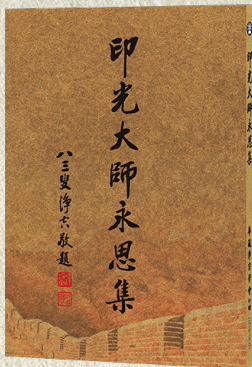 印光大師永思集
八三叟淨空敬題
印光大師永思集